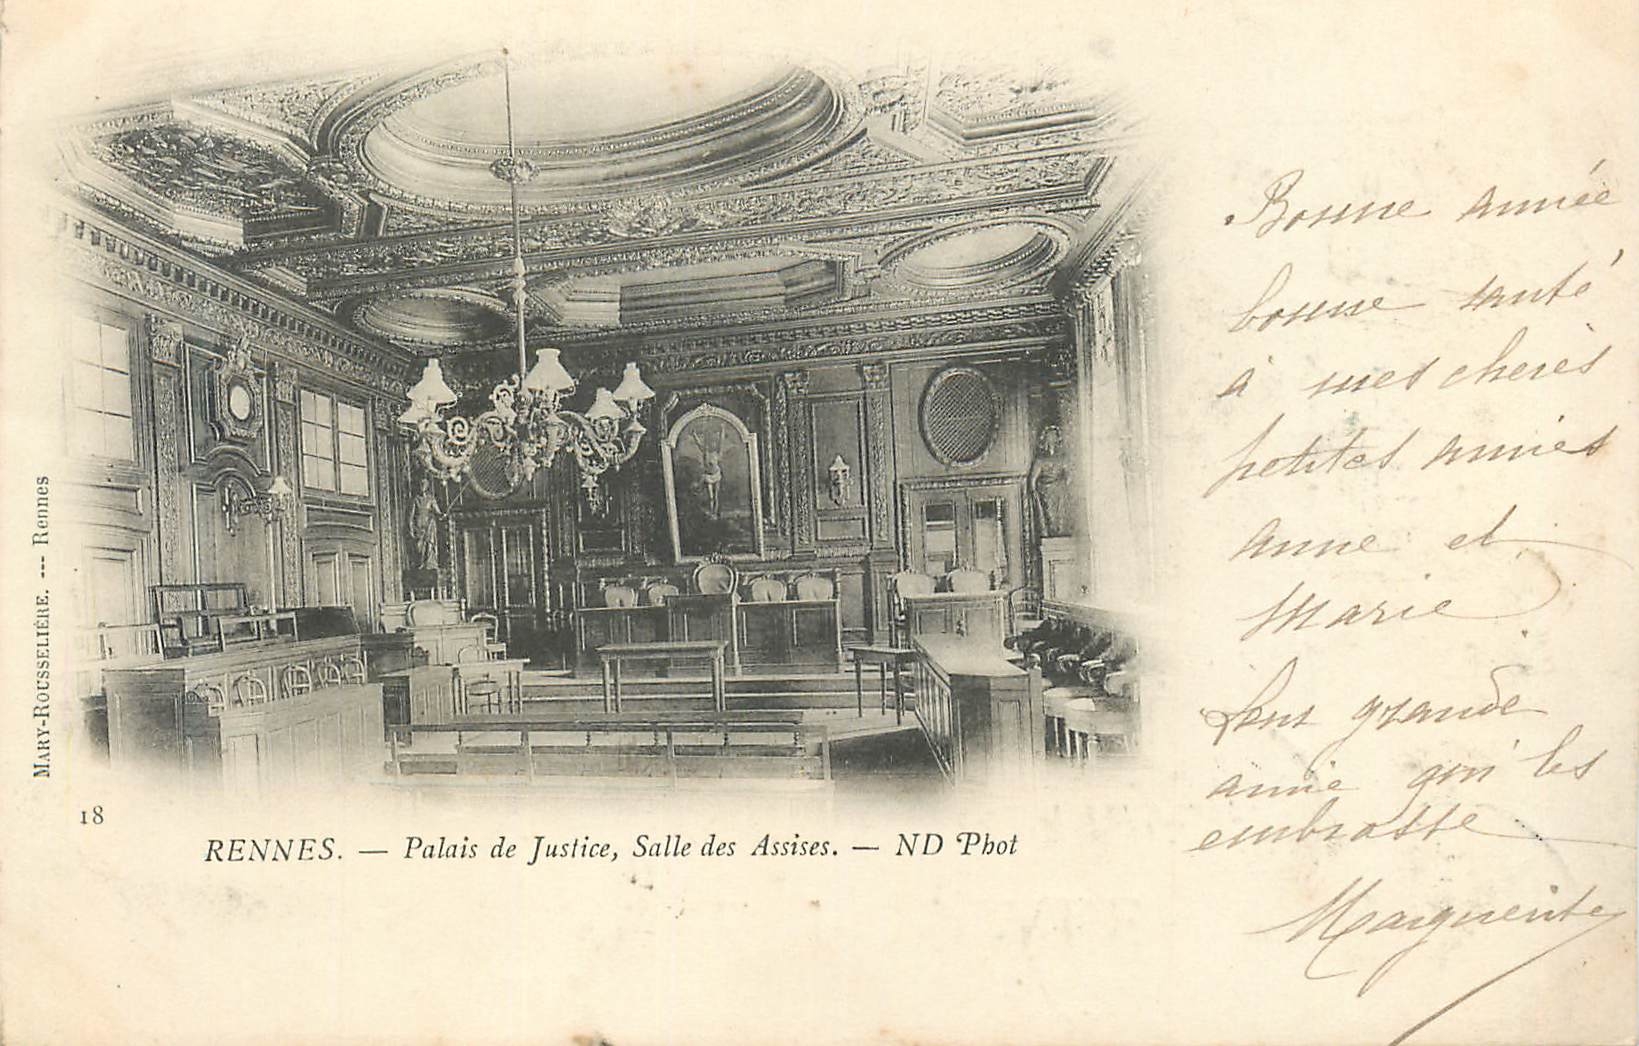 MARY-ROUSSELIÈRE. --- Rennes
18
RENNES. — Palais de Justice, Salle des Assises. — ND Phot
Bonne année
bonne santé
à mes chères
petites amies
Anne et
Marie
Leur grande
amie qui les
embrasse
Marguerite